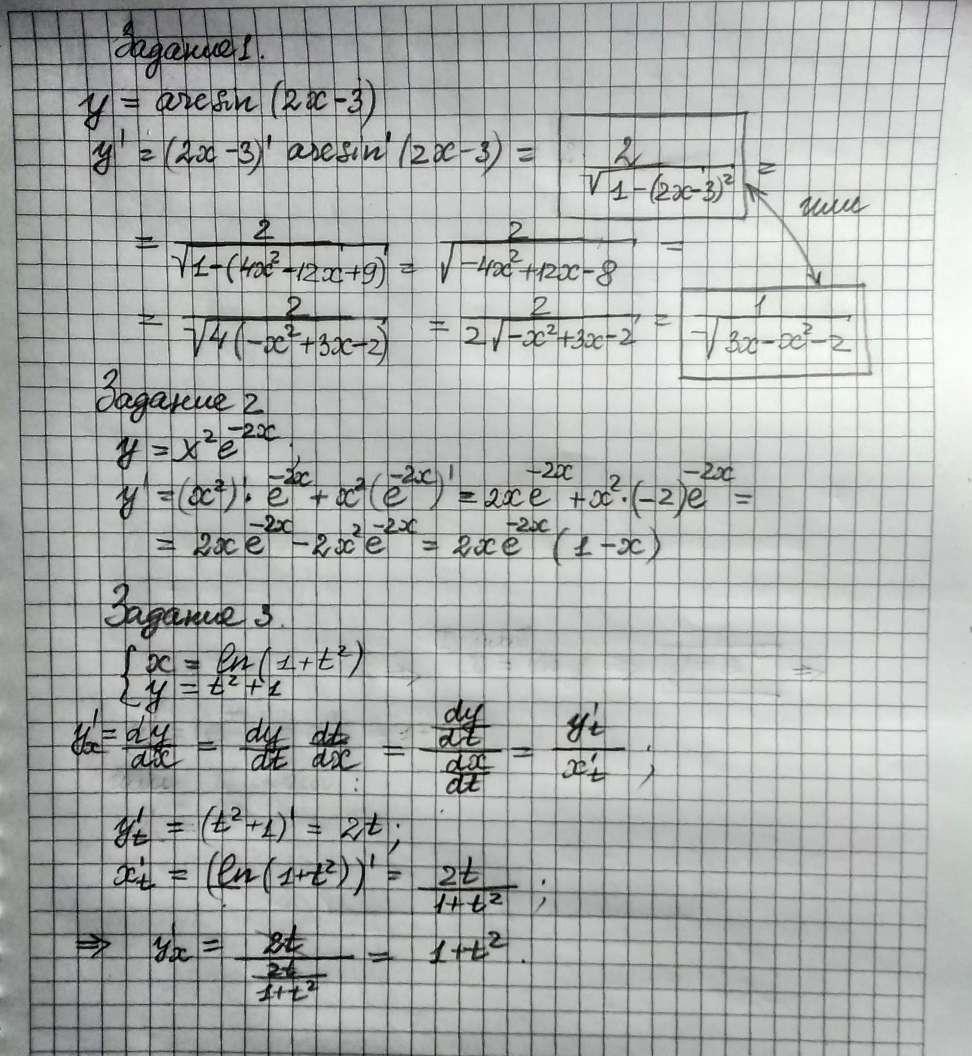 Задание 1.
y = arcsin (2x-3)
y' = (2x-3)' arcsin' (2x-3) = 2/√(1-(2x-3)²) =
или
= 2/√(1-(4x²-12x+9)) = 2/√(-4x²+12x-8) =
= 2/√(4(-x²+3x-2)) = 2/(2√(-x²+3x-2)) = 1/√(3x-x²-2)
Задание 2
y = x²e^(-2x).
y' = (x²)'·e^(-2x) + x²(e^(-2x))' = 2xe^(-2x) + x²·(-2)e^(-2x) =
= 2xe^(-2x) - 2x²e^(-2x) = 2xe^(-2x) (1-x)
Задание 3.
{ x = ln(1+t²)
y = t²+1
y'ₓ = dy/dx = dy/dt dt/dx = (dy/dt)/(dx/dt) = y'ₜ/x'ₜ ;
y'ₜ = (t²+1)' = 2t;
x'ₜ = (ln(1+t²))' = 2t/(1+t²) ;
⇒ y'ₓ = 2t/(2t/(1+t²)) = 1+t².